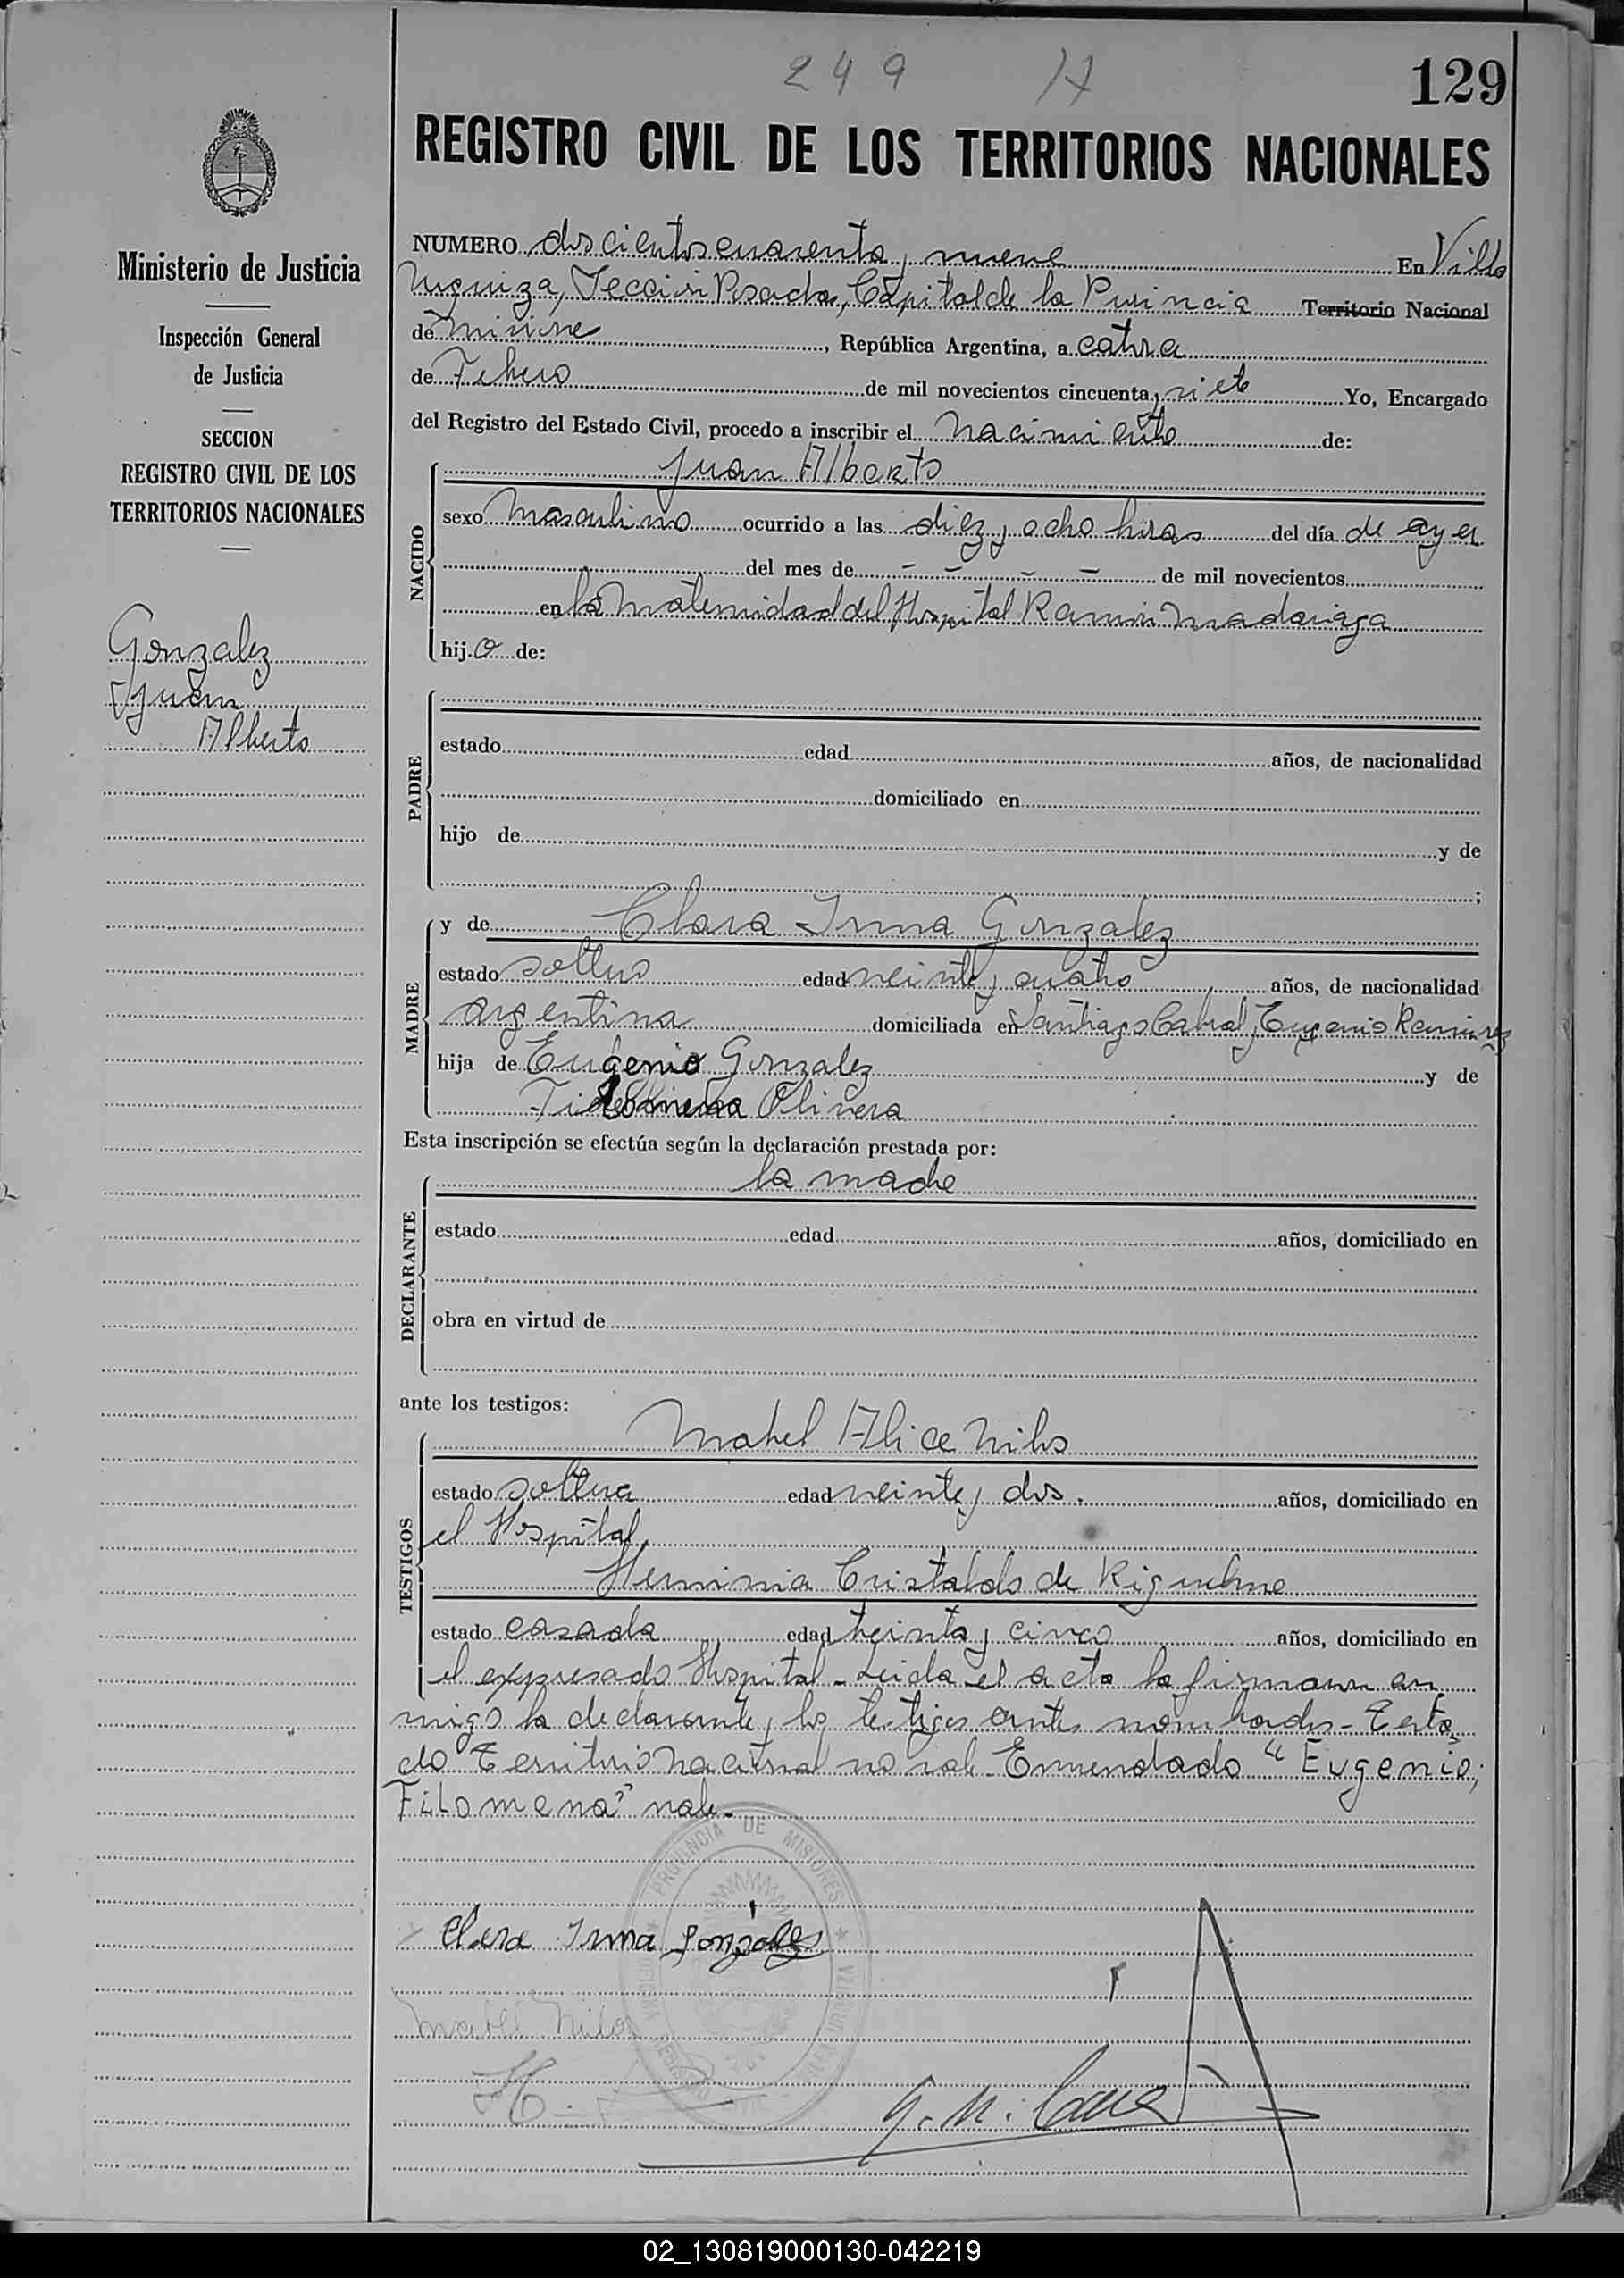 249
129
REGISTRO CIVIL DE LOS TERRITORIOS NACIONALES
Ministerio de Justicia
Inspección General
de Justicia
SECCION
REGISTRO CIVIL DE LOS
TERRITORIOS NACIONALES
Gonzalez
Juan
Alberto
NUMERO doscientos cuarenta y nueve En Villa
Urquiza, Sección Posadas, Capital de la Provincia Territorio Nacional
de Misiones, República Argentina, a catorce
de Febrero de mil novecientos cincuenta y siete Yo, Encargado
del Registro del Estado Civil, procedo a inscribir el nacimiento de:
NACIDO
Juan Alberto
sexo masculino ocurrido a las diez y ocho horas del día de ayer
del mes de - - - - de mil novecientos
en la Maternidad del Hospital Ramón Madariaga
hijo de:
PADRE
estado edad años, de nacionalidad
domiciliado en
hijo de y de
;
MADRE
y de Clara Irma Gonzalez
estado soltera edad veinte y cuatro años, de nacionalidad
argentina domiciliada en Santiago Cabral y Eugenio Ramirez
hija de Eugenio Gonzalez y de
Filomena Olivera
Esta inscripción se efectúa según la declaración prestada por:
DECLARANTE
la madre
estado edad años, domiciliado en
obra en virtud de
ante los testigos:
TESTIGOS
Mabel Alice Nilos
estado soltera edad veinte y dos. años, domiciliado en
el Hospital
Herminia Cristaldo de Riquelme
estado casada edad treinta y cinco años, domiciliado en
el expresado Hospital - Leida el acta la firmaron con
migo la declarante y los testigos antes nombrados - Testa
do "Territorio Nacional no vale - Enmendado "Eugenio;
Filomena" vale -
PROVINCIA DE MISIONES
Clara Irma Gonzalez
Mabel Nilos